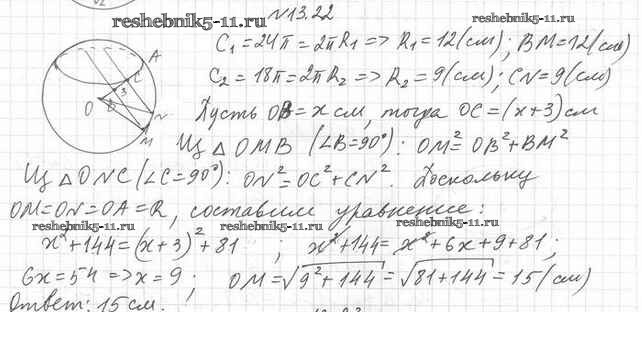 N13.22
reshebnik5-11.ru
reshebnik5-11.ru
C₁=24π=2πR₁=>R₁=12(см); BM=12(см)
C₂=18π=2πR₂=>R₂=9(см); CN=9(см)
A
C
3
O
B
N
M
Пусть OB=x см, тогда OC=(x+3)см
Из △OMB (∠B=90°): OM²=OB²+BM²
Из △ONC (∠C=90°): ON²=OC²+CN². Поскольку
OM=ON=OA=R, составим уравнение:
reshebnik5-11.ru
reshebnik5-11.ru
reshebnik5-11.ru
x²+144=(x+3)²+81 ; x²+144=x²+6x+9+81;
6x=54=>x=9; OM=√9²+144=√81+144=15(см)
Ответ: 15 см.